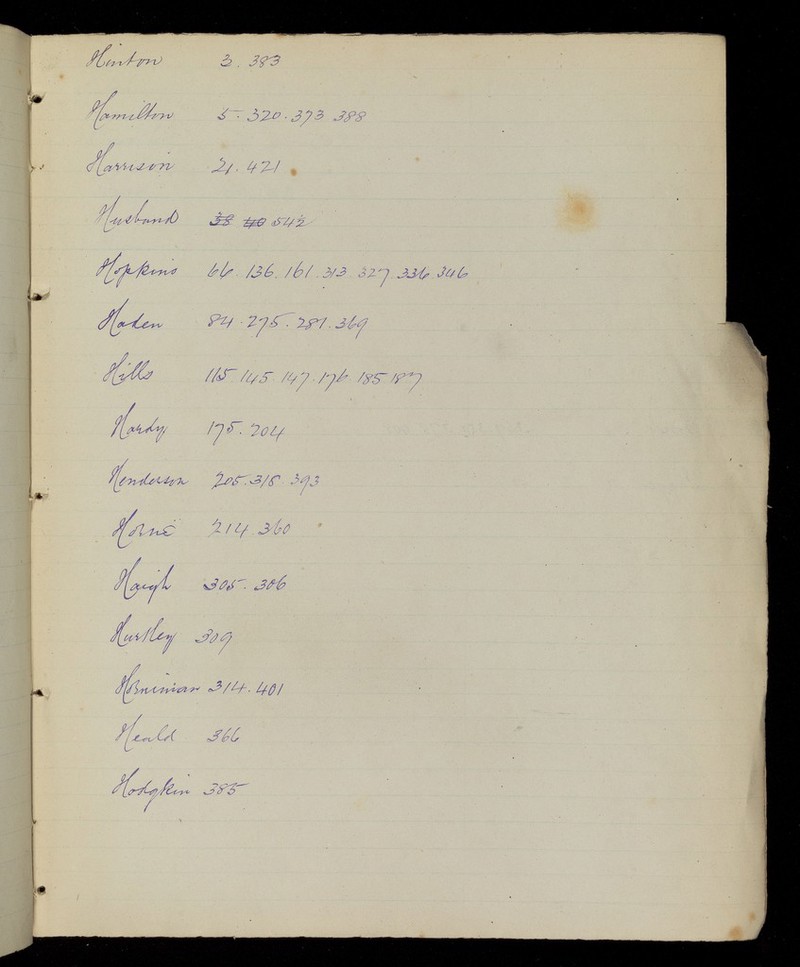 Hinton 3. 383
Hamilton 5. 320. 373 388
Harrison 21. 421
Husband 38 40 542
Hopkins 66. 136. 161. 313. 327. 336 346
Haden 84. 275. 281. 369
Hills 115. 145. 147. 176. 185 187
Hardy 175. 204
Henderson 205. 318. 393
Horne 214. 360
Haigh 305. 306
Hurtley 309
Horniman 314. 401
Heald 366
Hodgkin 385